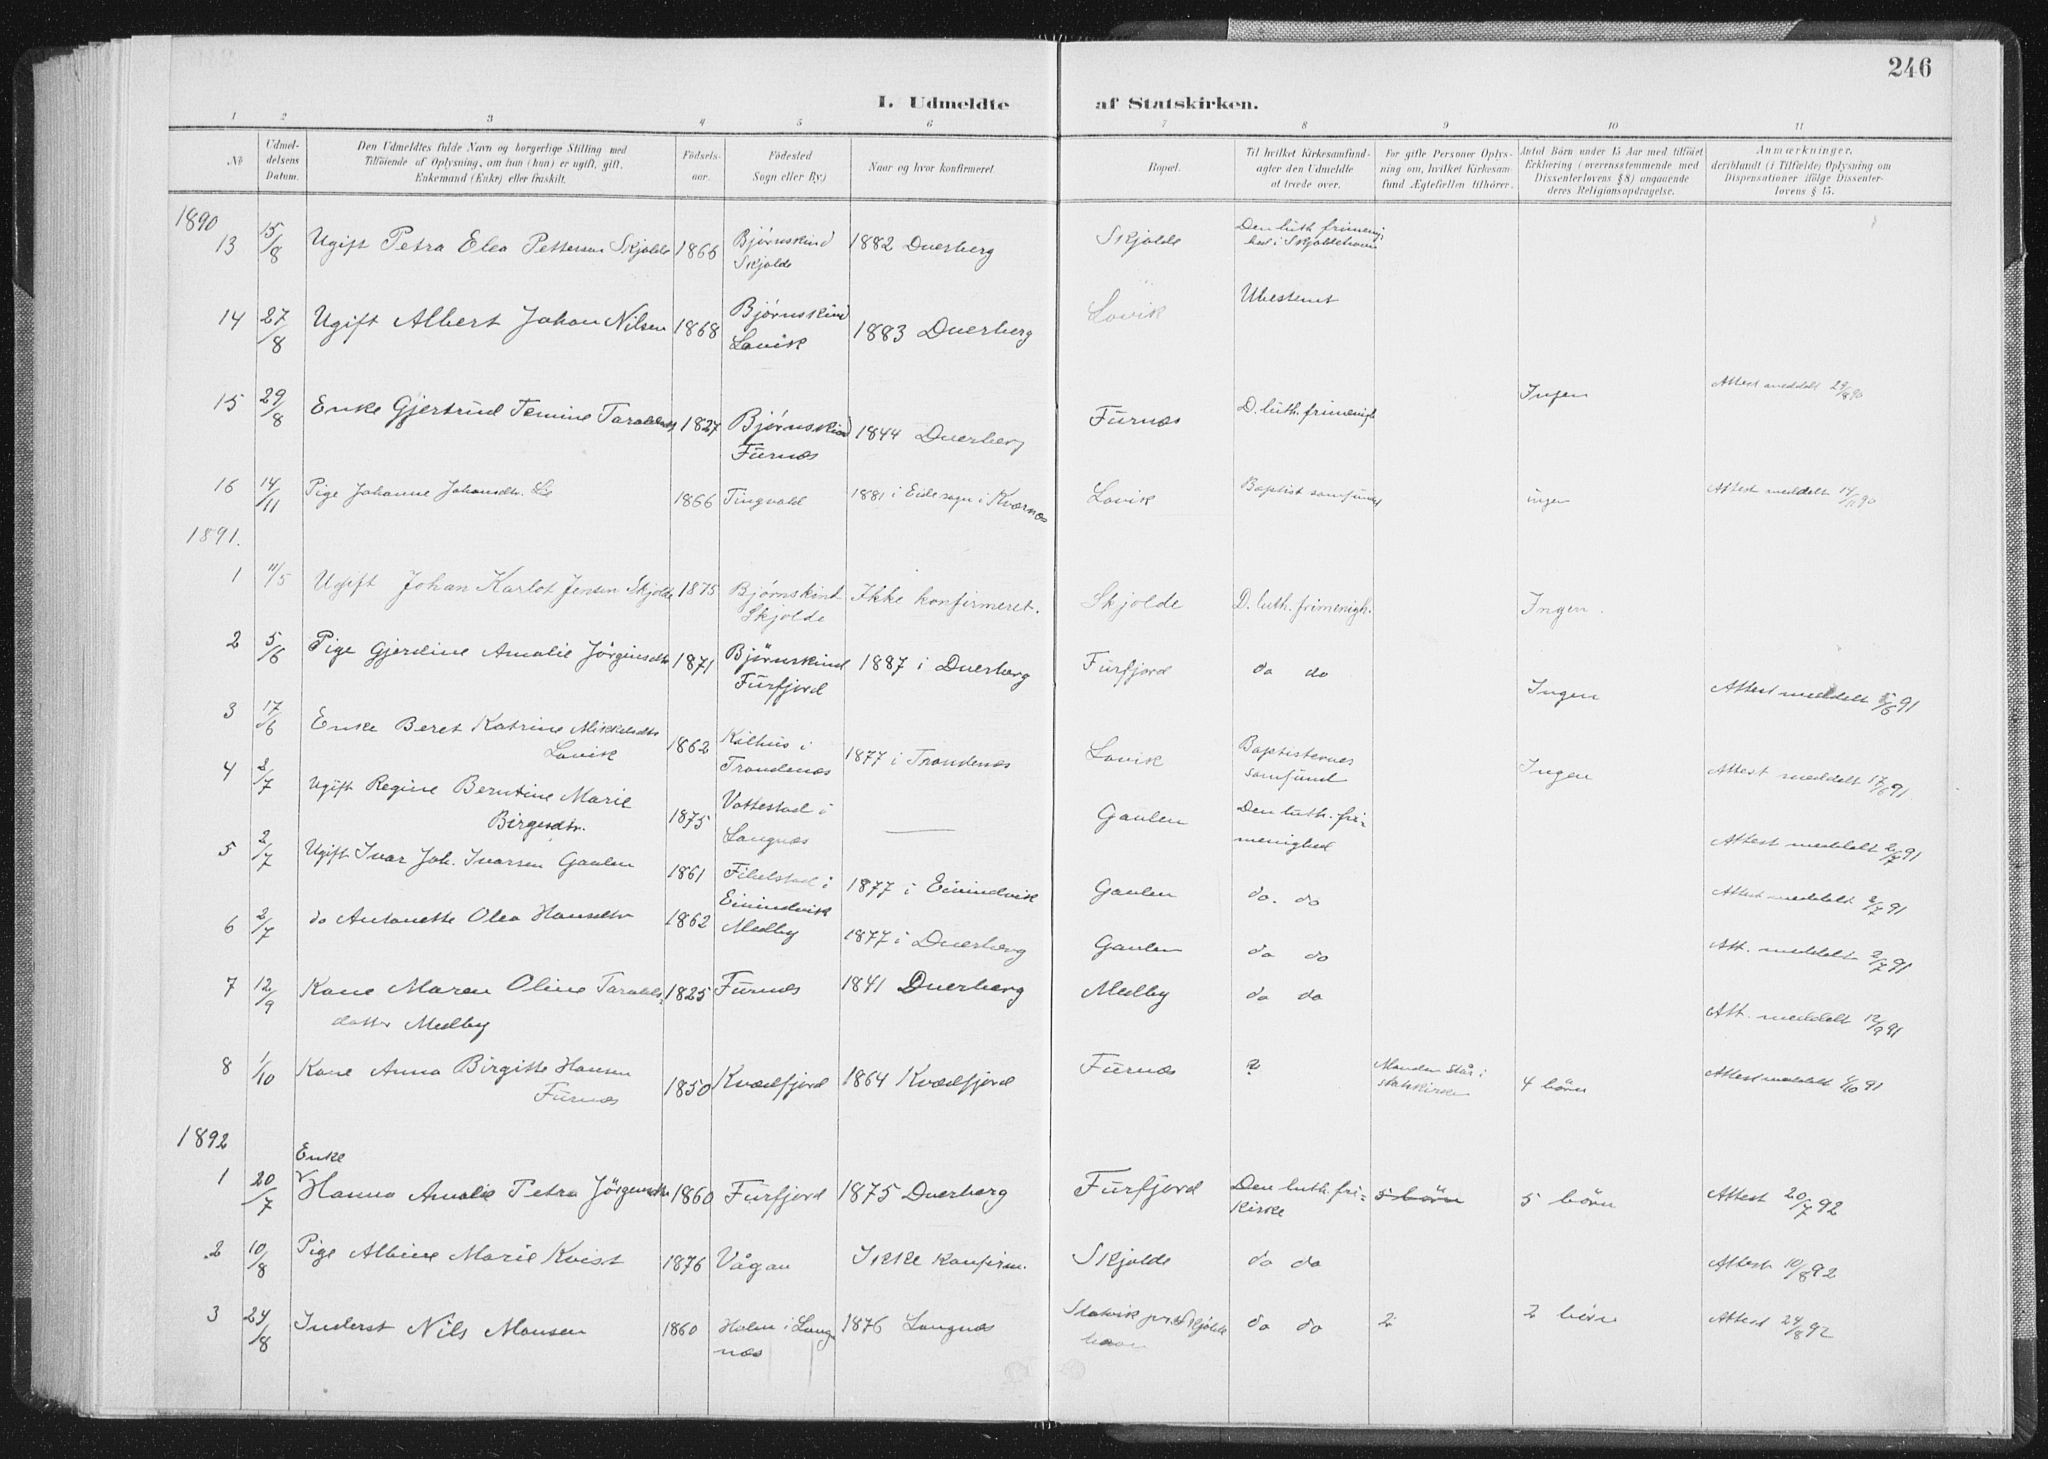 246
I. Udmeldte af Statskirken.
1 2 3 4 5 6 7 8 9 10 11
No
Udmeldelsens Datum.
Den Udmeldtes fulde Navn og borgerlige Stilling med
Tilföiende af Oplysning, om han (hun) er ugift, gift,
Enkemand (Enke) eller fraskilt.
Födselsaar.
Födested
Sogn eller By.)
Naar og hvor konfirmeret
Bopæl.
Til hvilket Kirkesamfund
agter den Udmeldte
at træde over.
For gifte Personer Oplys-
ning om, hvilket Kirkesam-
fund Ægtefællen tilhörer.
Antal Börn under 15 Aar med tilföiet
Erklæring (overensstemmende med
Dissenterlovens § 8) angaaende
deres Religionsopdragelse.
Anmærkninger,
deriblandt (i Tilfælde) Oplysning om
Dispensationer ifölge Dissenter-
lovens § 15.
1890
13 15/8 Ugift Petra Elea Pettersen Skjolde 1866 Bjørnskind Skjolde 1882 Dverberg Skjolde Den luth frimenighed i Skjoldehavn
14 27/8 Ugift Albert Johan Nilsen 1868 Bjørnskind Lovik 1883 Dverberg Lovik Ubestemt
15 29/8 Enke Gjertrud Temine Taraldsd 1827 Bjørnskind Furnæs 1844 Dverberg Furnæs D. luth. frimenigh Ingen Attest meddelt 29/8 90
16 14/11 Pige Johanne Johansdtr. Lie 1866 Tingvold 1881 i Eide sogn i Kværnæs Lovik Baptist samfund ingen Attest meddelt 14/11 90
1891.
1 11/5 Ugift Johan Karlot Jensen Skjolde 1875 Bjørnskind Skjolde Ikke konfirmeret. Skjolde D. luth. frimenigh. Ingen.
2 5/6 Pige Gjerdine Amalie Jørginsdtr 1871 Bjørnskind Furfjord 1887 i Dverberg Furfjord do do Ingen Attest meddelt 5/6 91
3 17/6 Enke Beret Katrine Mikkelsdtr Lovik 1862 Kilhus i Trondenæs 1877 i Trondenæs Lovik Baptisternes samfund Ingen Attest meddelt 17/6 91
4 2/7 Ugift Regine Berntine Marie Birgersdtr. 1875 Vottestad i Langnæs — Gaulen Den luth. frimenighed Attest meddelt 2/7 91
5 2/7 Ugift Ivar Joh. Ivarsen Gaulen 1861 Eivindvik 1877 i Eivindvik Gaulen do. do Attest meddelt 2/7 91
6 2/7 do Antonette Olea Hansdtr 1862 Medby 1877 i Dverberg Gaulen do do Att. meddelt 2/7 91
7 12/9 Kone Maren Oline Taralds- datter Medby 1825 Furnæs 1841 Dverberg Medby do do Att. meddelt 12/9 91
8 1/10 Kone Anna Birgitte Hansen Furnæs 1850 Kvædfjord 1864 Kvædfjord Furnæs ? Manden står i statskirken 4 börn Attest meddelt 1/10 91
1892
1 20/7 Enke Hanna Amalie Petra Jörgensdtr 1860 Furfjord 1875 Dverberg Furfjord Den luth. frikirke 5 börn 5 börn Attest 20/7 92
2 10/8 Pige Albine Marie Kvist 1876 Vågan Ikke konfirm. Skjolde do do Attest 10/8 92
3 24/8 Inderst Nils Monsen 1860 Holm i Langnæs 1876 Langnæs Skjoldehavn do do 2 2 börn Attest 24/8 92